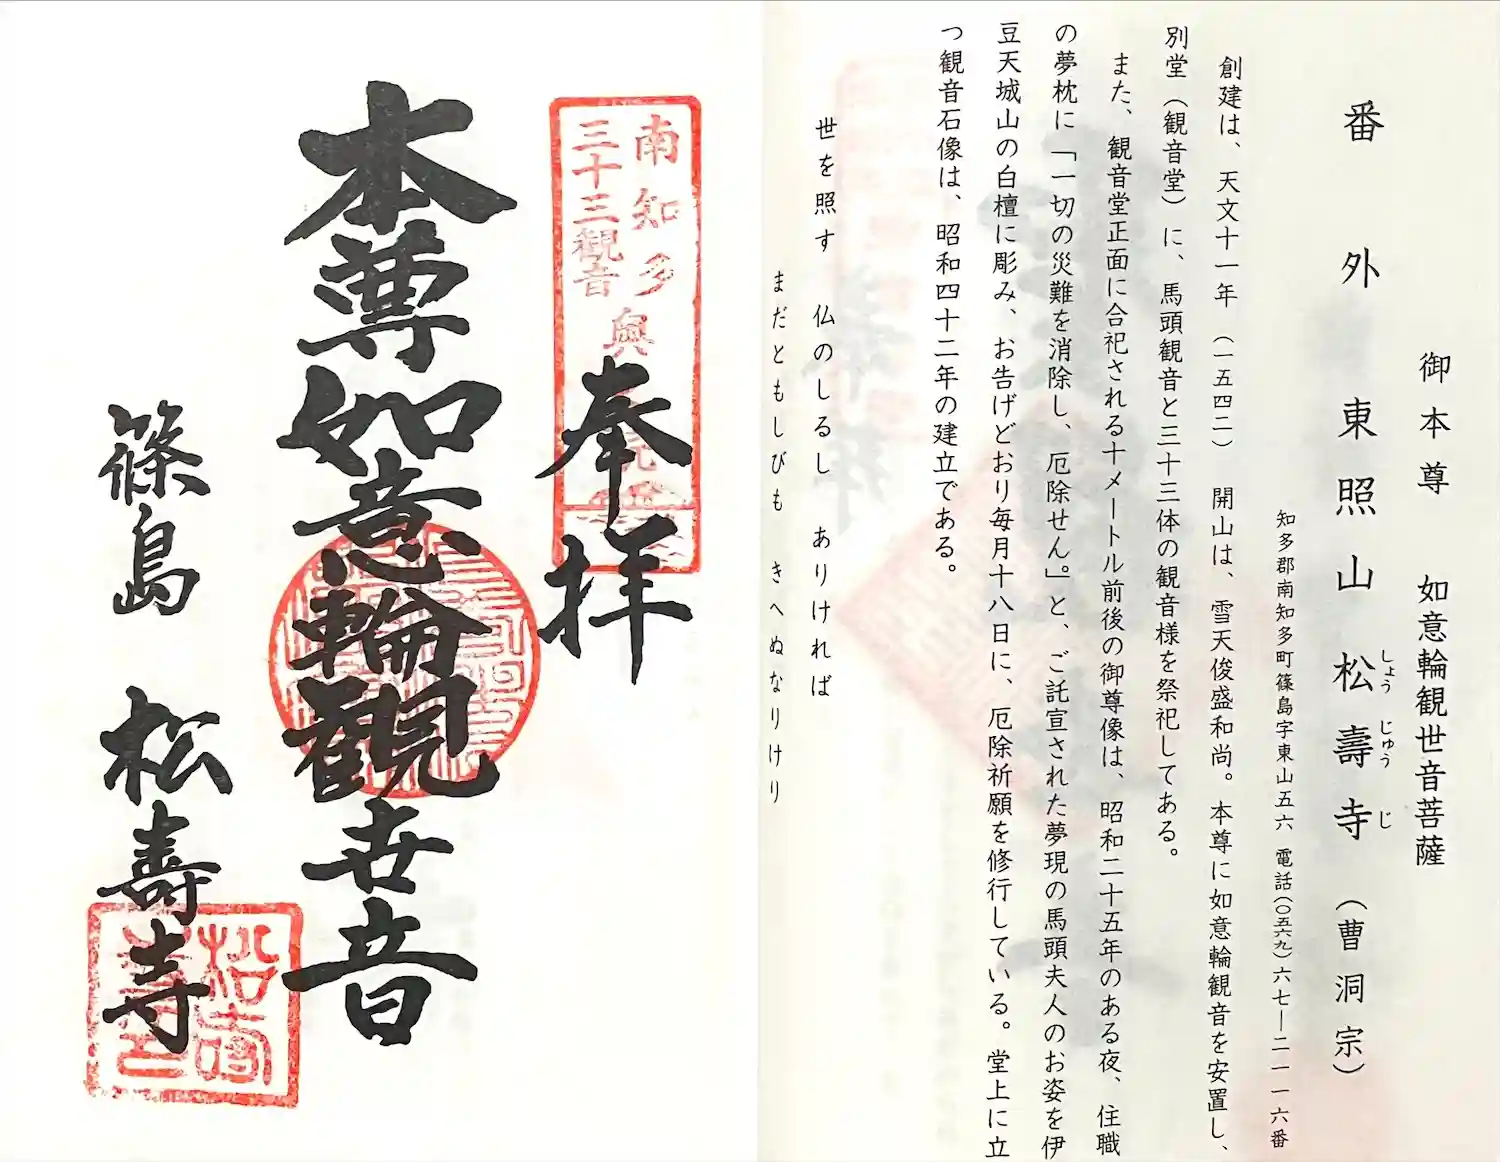 御本尊　如意輪観世音菩薩
番外　東照山松壽寺（曹洞宗）
しょう　じゅう　じ
知多郡南知多町篠島字東山五六　電話（〇五六九）六七―二一一六番
創建は、天文十一年（一五四二）開山は、雪天俊盛和尚。本尊に如意輪観音を安置し、
別堂（観音堂）に、馬頭観音と三十三体の観音様を祭祀してある。
また、観音堂正面に合祀される十メートル前後の御尊像は、昭和二十五年のある夜、住職
の夢枕に「一切の災難を消除し、厄除せん。」と、ご託宣された夢現の馬頭夫人のお姿を伊
豆天城山の白檀に彫み、お告げどおり毎月十八日に、厄除祈願を修行している。堂上に立
つ観音石像は、昭和四十二年の建立である。
世を照す　仏のしるし　ありければ
まだともしびも　きへぬなりけり
南知多
三十三観音
奉拝
本尊如意輪観世音
篠島　松壽寺